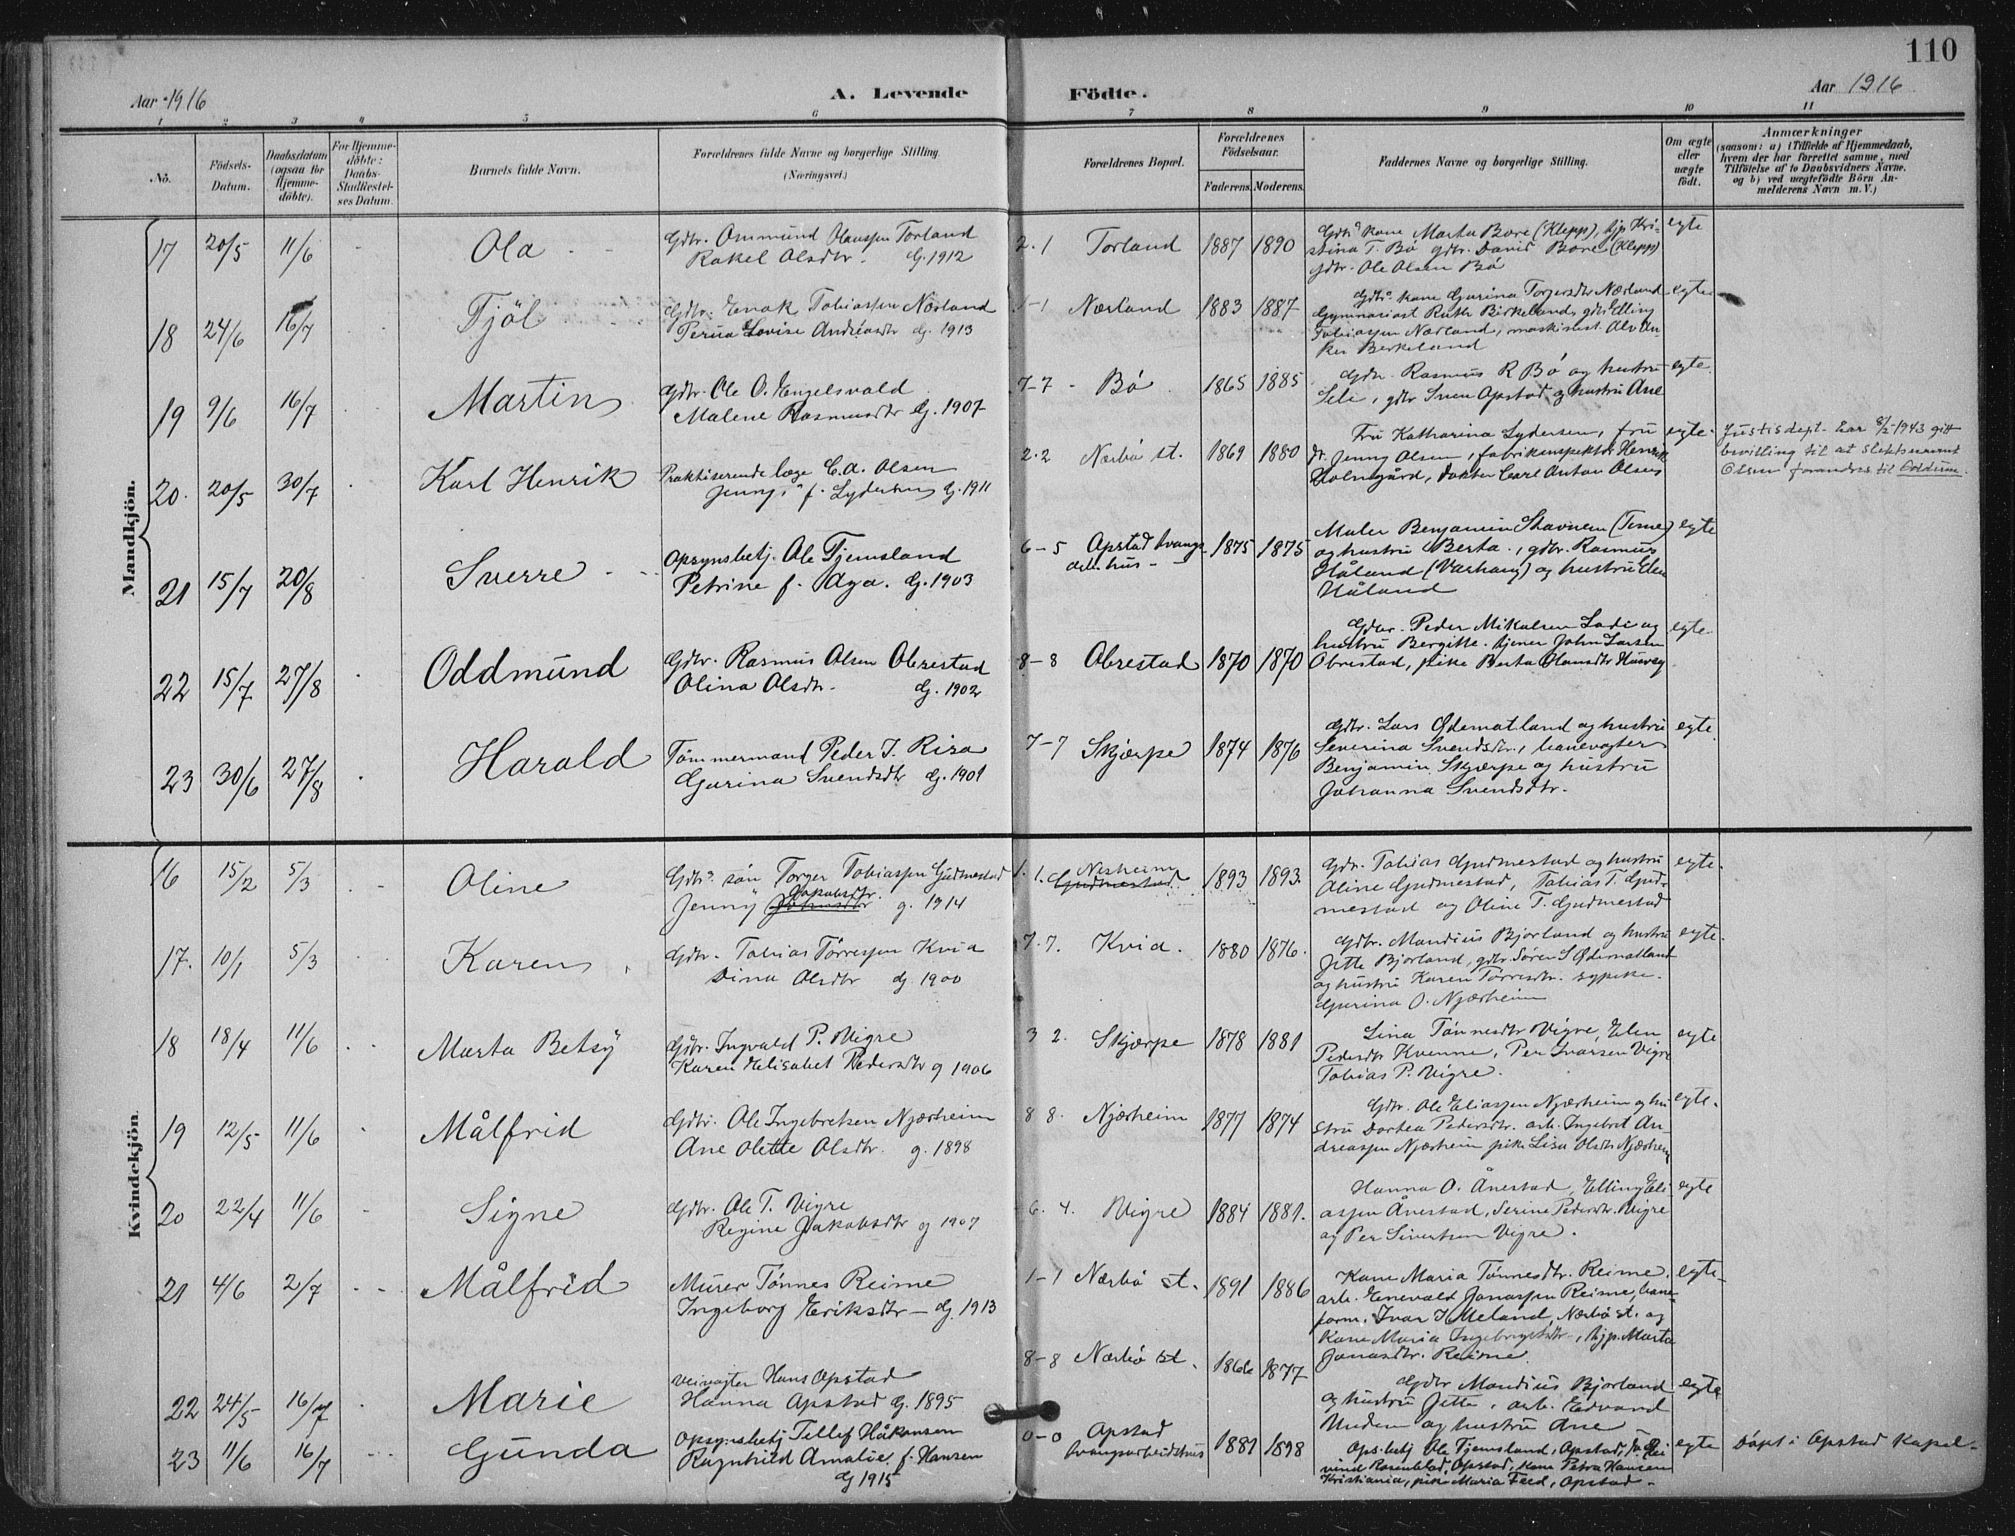 110
Aar 1916
A. Levende Födte.
Aar 1916
1 2 3 4 5 6 7 8 9 10 11
No.
Födsels-Datum.
Daabsdatum (ogsaa för Hjemme-döbte).
For Hjemme-döbte: Daabs-Stadfæstel-ses Datum.
Barnets fulde Navn.
Forældrenes fulde Navne og borgerlige Stilling.
(Næringsvei.)
Forældrenes Bopæl.
Forældrenes Födselsaar.
Faderens. Moderens.
Faddernes Navne og borgerlige Stilling.
Om ægte eller uægte födt.
Anmærkninger
(saasom: a) i Tilfælde af Hjemmedaab,
hvem der har forrettet samme, med
Tilföielse af to Daabsvidners Navne,
og b) ved uægtefödte Börn An-
melderens Navn m. V.)
Mandkjön.
17 20/5 11/6 Ola
Gdbr. Ommund Olaussen Torland
Rakel Olsdtr. G. 1912
2.1 Torland 1887 1890
Gdbrs kone Marta Bore (Klepp), pike Kri-
stina T. Bø gdbr. David Bore (Klepp)
gdbr. Ole Olsen Bø
egte
18 24/6 16/7 Tjöl
Gdbr. Enok Tobiassen Nærland
Perna Lovise Andreasdtr G. 1913
1-1 Nærland 1883 1887
Gdbrs kone Gurina Torgersdtr Nærland
Gymnasiast Ruth Birkeland, gdbr Elling
Tobiassen Nærland, maskinist Alv An-
ker Berkeland
egte
19 9/6 16/7 Martin
Gdbr. Ole O. Engelsvold
Malene Rasmusdtr G. 1907
7-7 - Bö 1865 1885
Gdbr. Rasmus R Bö og hustru
Sele, gdbr Sven Opstad og hustru Ane
egte
20. 20/5 30/7 Karl Henrik
Praktiserende læge C.A. Olsen
Jenny f. Lydersen G. 1911
2.2 Nærbö st. 1869 1880
Fru Katharina Lydersen, fru
dr. Jenny Olsen, fabrikinspektör Henrik
Holmgård, doktor Carl Anton Olsen
egte.
Justisdept. har 8/2-1943 gitt
bevilling til at slektsnavnet
Olsen forandres til Oddum.
21 15/7 20/8 Sverre
Opsynsbetj. Ole Tjemsland
Petrine f. Aga. G. 1903
6-5 Opstad tvangs-
arb.hus 1875 1875
Maler Benjamin Stavnem (Time)
og hustru Berta, gdbr. Rasmus
Håland (Varhaug) og hustru Elen
Håland
egte
22 15/7 27/8 Oddmund
Gdbr. Rasmus Olsen Obrestad
Olina Olsdtr. G. 1902
8-8 Obrestad 1870 1870
Gdbr. Peder Mikalsen Lode og
hustru Bergitte. tjener John Larsen
Obrestad, pike Berta Olausdtr Husveg
egte
23 30/6 27/8 Harald
Tömmermand Peder J. Risa
Gurina Svendsdtr G. 1901
7-7 Skjærpe 1874 1876
Gdbr. Lars Ödematland og hustru
Severina Svendsdtr., banevogter
Benjamin Skjærpe og hustru
Johanna Svendsdtr.
egte.
Kvindekjön.
16 15/2 5/3 Oline
Gdbrs. sön Torger Tobiassen Gudmestad
Jenny Jakobsdtr. g. 1914
1.1. Nesheim
Gudmestad 1893 1893.
Gdbr. Tobias Gudmestad og hustru
Oline Gudmestad, Tobias T. Gud-
mestad og Oline T. Gudmestad
egte.
17. 10/1 5/3 Karen
Gdbr. Tobias Törressen Kvia
Dina Olsdtr g 1900
7.7. Kvia. 1880 1876.
Gdbr. Mandius Bjorland og hustru
Jette Bjorland, gdbr Sören S Ödemotland
og hustru Karen Törresdtr. sypike
Gurina O. Njærheim
egte.
18 18/4 11/6 Marta Betsy
Gdbr. Ingvald P. Vigre
Karen Elisabet Pedersdtr g 1906
3 2. Skjærpe 1878 1881
Lina Tönnesdtr Vigre, Elen
Pedersdtr Kvenne, Per Ivarsen Vigre
Tobias P. Vigre.
egte
19 12/5 11/6 Målfrid
Gdbr. Ole Ingebretsen Njærheim
Ane Olette Olsdtr. g. 1898
8 8. Njærheim 1877 1874
Gdbr. Ole Eliassen Njærheim og hu-
stru Dortea Pedersdtr. arb. Ingebret An-
dreassen Njærheim pike Lisa Olsdtr Njærheim
egte.
20 22/4 11/6 Signe
Gdbr. Ole T. Vigre
Regine Jakobsdtr g 1907
6. 4. Vigre 1884 1881.
Hanna O. Ånestad, Elling Eli-
assen Ånestad, Serine Pedersdtr. Vigre
og Per Sivertsen Vigre.
egte
21 4/6 2/7 Målfrid
Murer Tönnes Reime
Ingeborg Eriksdtr - G. 1913
1-1 Nærbö st. 1891 1886
Kone Maria Tönnesdtr. Reime,
arb. Enevald Jonassen Reime, bane-
form. Ivar H Meland, Nærbö st. og
Kone Maria Ingebregtsdtr, hjp. Marta
Jonasdtr. Reime.
egte
22 24/5 16/7 Marie
Veivogter Hans Opstad
Hanna Opstad G. 1895
8-8 Nærbö st. 1866 1877
Gdbr Mandius Bjorland
og hustru Jette, arb. Edvard
Unden og hustru Ane
egte
23 11/6 16/7 Gunda
Opsynsbetj Tellef Håkonsen
Ragnhild Amalie f. Hansen
G 1915
0-0 Opstad
tvangsarbeidshus 1881 1898
Ops.betj Ole Tjemsland, Opstad,
vind Rosenblad, Opstad, kone Petra Hansen
Kristiania, pike Maria Feed, Opstad.
egte
Döpt i Opstad Kapel.